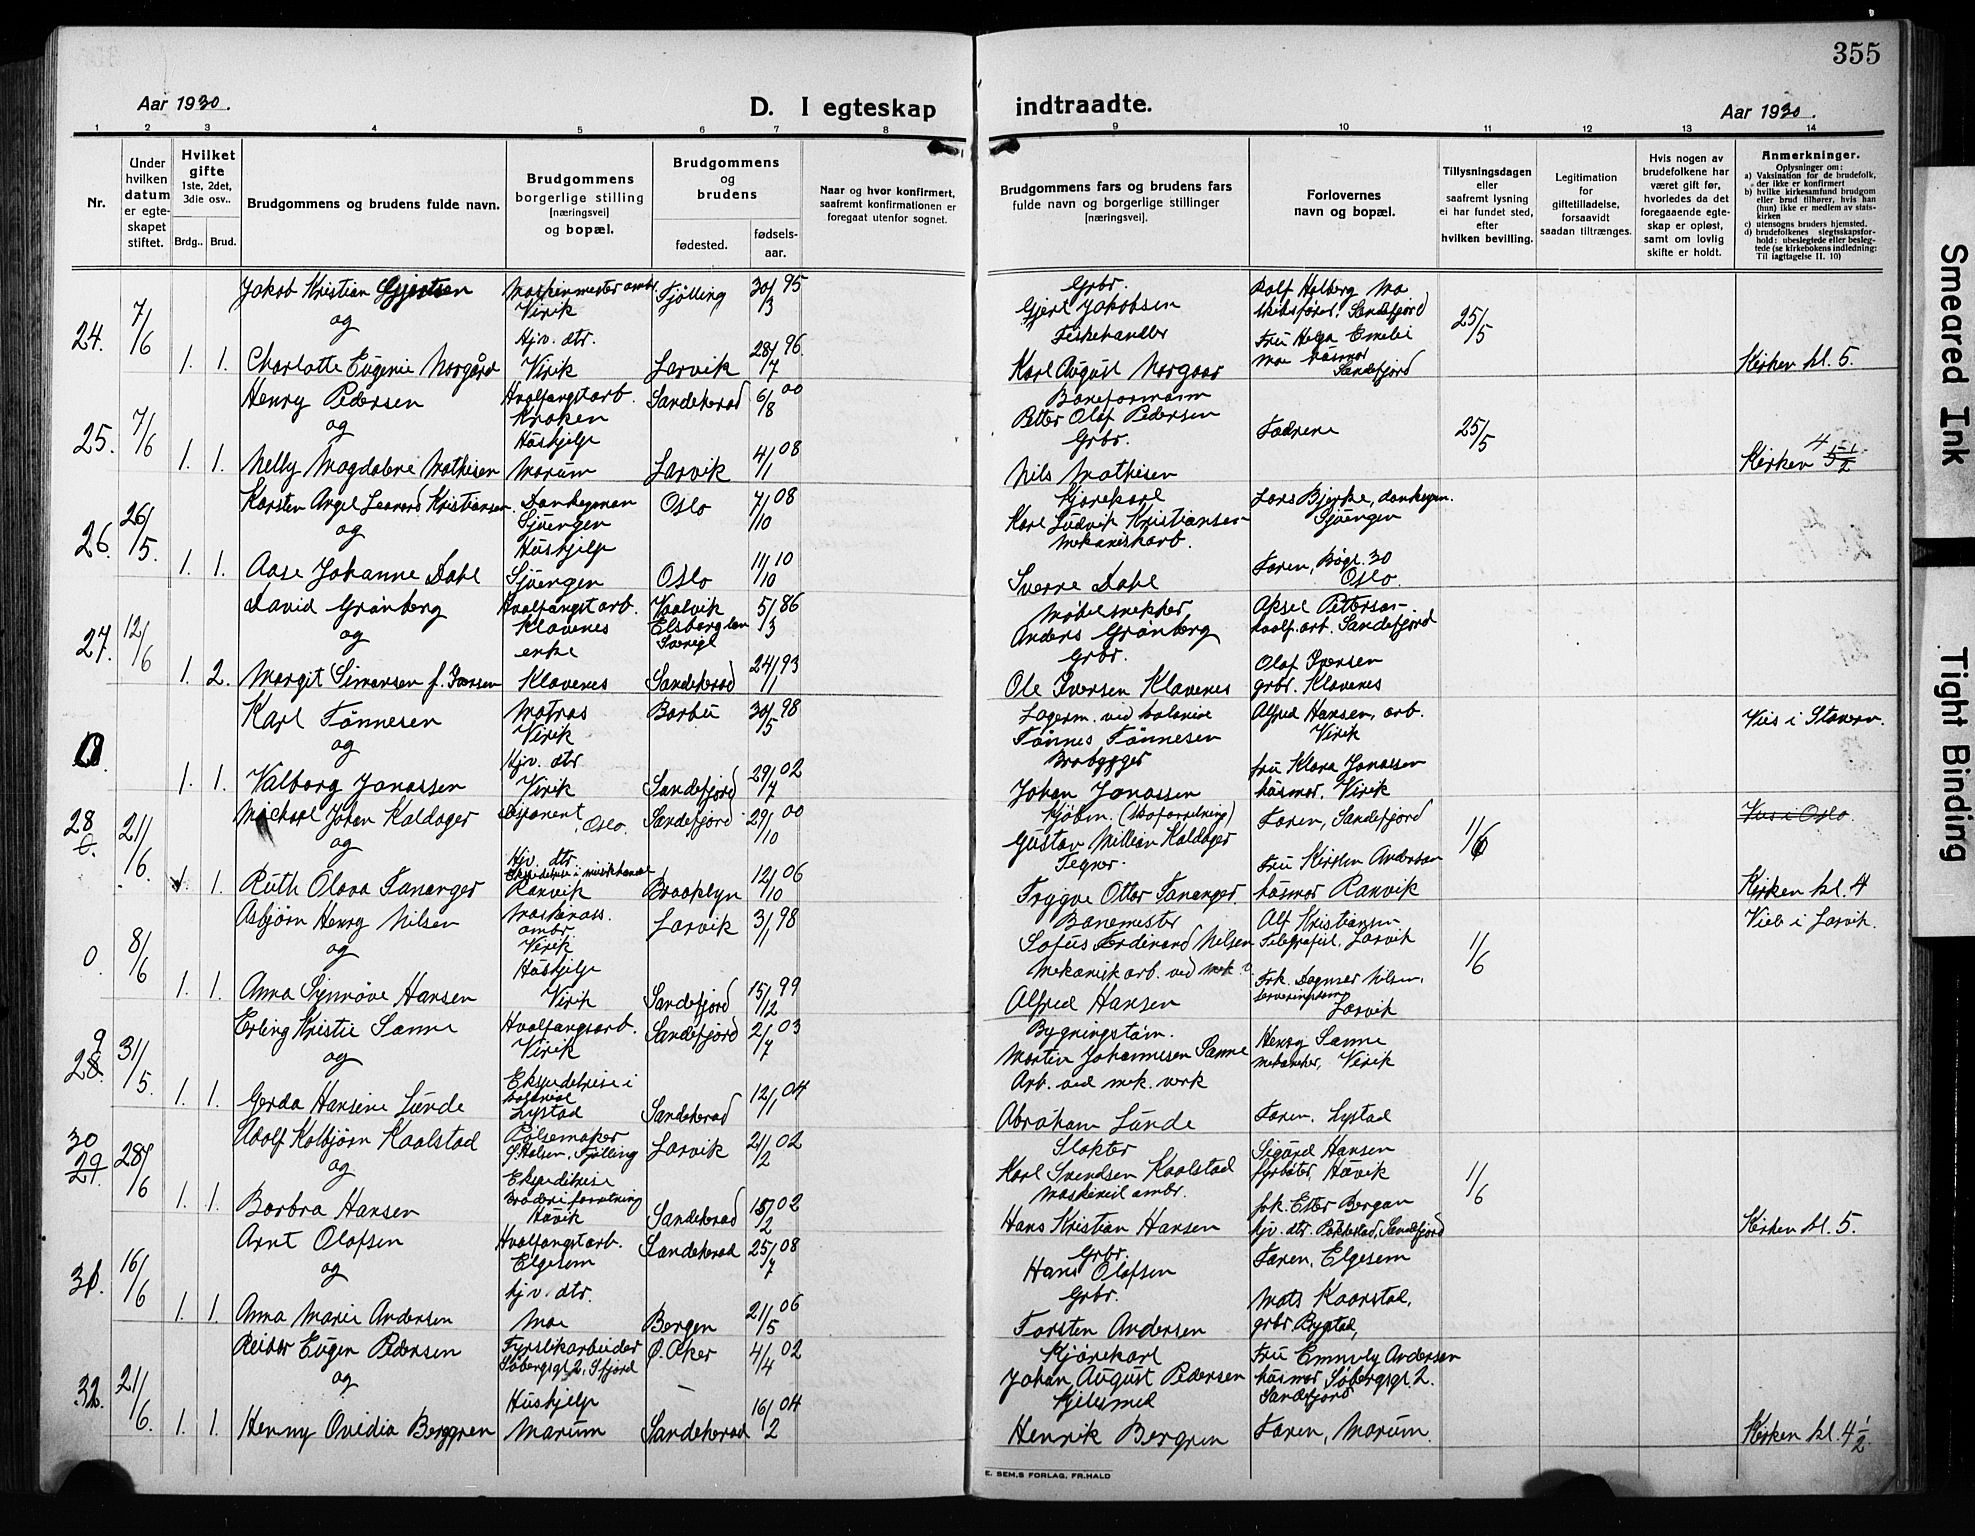 355
Aar 1930.
D. I egteskap indtraadte.
Aar 1930.
1 2 3 4 5 6 7 8 9 10 11 12 13 14
Nr.
Under hvilken datum er egteskapet stiftet.
Hvilket gifte 1ste, 2det, 3die osv..
Brdg.. Brud.
Brudgommens og brudens fulde navn.
Brudgommens borgerlige stilling [næringsvei] og bopæl.
Brudgommens og brudens
fødested.
fødsels-aar.
Naar og hvor konfirmert, saafremt konfirmationen er foregaat utenfor sognet.
Brudgommens fars og brudens fars fulde navn og borgerlige stillinger [næringsvei].
Forlovernes navn og bopæl.
Tillysningsdagen eller saafremt lysning ei har fundet sted, efter hvilken bevilling.
Legitimation for giftetilladelse, forsaavidt saadan tiltrænges.
Hvis nogen av brudefolkene har været gift før, hvorledes da det foregaaende egteskap er opløst, samt om lovlig skifte er holdt.
Anmerkninger.
Oplysninger om:
a) Vaksination for de brudefolk, der ikke er konfirmert
b) hvilke kirkesamfund brudgom eller brud tilhører, hvis han (hun) ikke er medlem av statskirken
c) utensogns bruders hjemsted.
d) brudefolkenes slegtsskapsforhold: ubeslegtede eller beslegtede (se kirkebokens indledning: Til iagttagelse II. 10)
24. 7/6 1. 1.
Jakob Kristian Gjertsen
og
Charlotte Eugenie Norgård
Maskinmester
Virik
Hjv. dtr.
Virik
Tjølling 30/3 95
Larvik 28/7 96
Grbr.
Gjert Jakobsen
Fiskehandler
Karl August Norgaar
Rolf Holberg Mo
skibsfører, Sandefjord
Fru Helga Emelie
Moe husmor
Sandefjord
25/5
Kirken kl. 5.
25. 7/6 1. 1.
Henry Pedersen
og
Nelly Magdalene Mathisen
Hvalfangstarb.
Kroken
Hushjelp
Marum
Sandeherad 6/8 00
Larvik 4/1 08
Baneformann
Petter Olaf Pedersen
Grbr.
Nils Mathisen
Fædrene
25/5
Kirken 4 5 1/2
26. 26/5. 1. 1.
Karsten Angel Leonard Kristiansen
og
Aase Johanne Dahl
Donkeyman
Sjuengen
Hushjelp
Sjuengen
Oslo 7/10 08
Oslo 11/10 10
Kjørekarl
Karl Ludvik Kristiansen
Mekaniskarb.
Sverre Dahl
Lars Bjerke, donkeym.
Sjuengen
Faren, 30
Oslo.
27. 12/6 1. 2.
David Grönberg
og
Margit Simonsen f. Iversen
Hvalfangstarb.
Klavenes
enke
Klavenes
Elsborg len
Sverige
5/3 86
Sandeherad 24/11 93
Møbelsnekker
Anders Grönberg
Grbr.
Ole Iversen Klavenes
Aksel Pettersen
hvalf. arb. Sandefjord
Olaf Iversen
grbr. Klavenes
0. 1. 1.
Karl Tönnesen
og
Valborg Jonassen
Matros
Virik
Hjv. dtr
Virik
Barbu 30/5 98
Sandefjord 29/7 02
Lagerm. ved
Tönnes Tönnesen
Brobygger
Johan Jonassen
Alfred Hansen, arb.
Virik
fru Klara Jonassen
husmor, Virik
Vies i Stavern.
28 21/6. 1. 1.
Michael Johan Kaldager
og
Ruth Olava Tananger
Disponent, Oslo.
Hjv. dtr.
Ranvik
Sandefjord 29/10 00
Brooklyn 12/10 06
Kjøbm. (Skoforretning)
Gustav William Kaldager
Tegner.
Trygve Otter Tananger.
Faren, Sandefjord
Fru Kirsten Andersen
husmor Ranvik
1/6
Vies i Oslo
Kirken kl. 4
0. 8/6 1. 1.
Asbjørn Henry Nilsen
og
Anna Synnöve Hansen
Maskinass.
Virik
Hushjelp
Virik
Larvik 3/11 98
Sandefjord 15/12 99
Banemester
Sofus Ferdinand Nilsen
Mekanisk arb. ved mek. v.
Alfred Hansen
Alf Kristiansen
Telegrafist, Larvik
Frk. Dagmar Nilsen,
Larvik
1/6
Vies i Larvik.
28. 9 31/5. 1. 1.
Erling Kristie Sanne
og
Gerda Hansine Lunde
Hvalfangsarb.
Virik
Ekspeditrise i
Lystad
Sandefjord 2/7 03
Sandeherad 12/1 04
Bygningstøm.
Martin Johannesen Sanne
Arb. ved mek. verk
Abraham Lunde
Henry Sanne
mekaniker, Virik
Faren. Lystad
30 29. 28/6 1. 1.
Adolf Kolbjörn Kaalstad
og
Borbra Hansen
Pølsemaker
Ø. Halsen, Tjølling
Ekspeditrise
Broderiforretning
Haavik
Larvik 21/2 02
Sandeherad 15/2 02
Slakter
Karl Svendsen Kaalstad
Hans Kristian Hansen
Sigurd Hansen
fyrbøter, Haavik
frk. Ester Bergan
hjv. dtr. Pukkestad, Sandefjord
1/6
Kirken kl. 5.
31. 16/6 1. 1.
Arnt Olafsen
og
Anna Marie Andersen
Hvalfangstarb.
Elgesem
hjv. dtr.
Moe
Sandeherad 25/7 08
Bergen 21/5 06
Grbr.
Hans Olafsen
Grbr.
Torsten Andersen
Faren, Elgesem
Mats Kaarstad,
grbr Bygstad,
32. 21/6. 1. 1.
Reidar Eugen Pedersen
og
Henny Ovidia Berggren
Fyrstikarbeider
Søbergsgt. 2, S.fjord
Hushjelp
Marum
Ø. Aker 4/4 02
Sandeherad 16/2 04
Kjørekarl
Johan August Pedersen
Kjelesmed
Henrik Bergren
Fru Emmely Andersen
husmor Søbergsgt. 2.
Sandefjord
Faren, Marum.
Kirken kl. 4 1/2.
E. SEM.S FORLAG, FR.HALD
Smeared Ink
Tight Binding